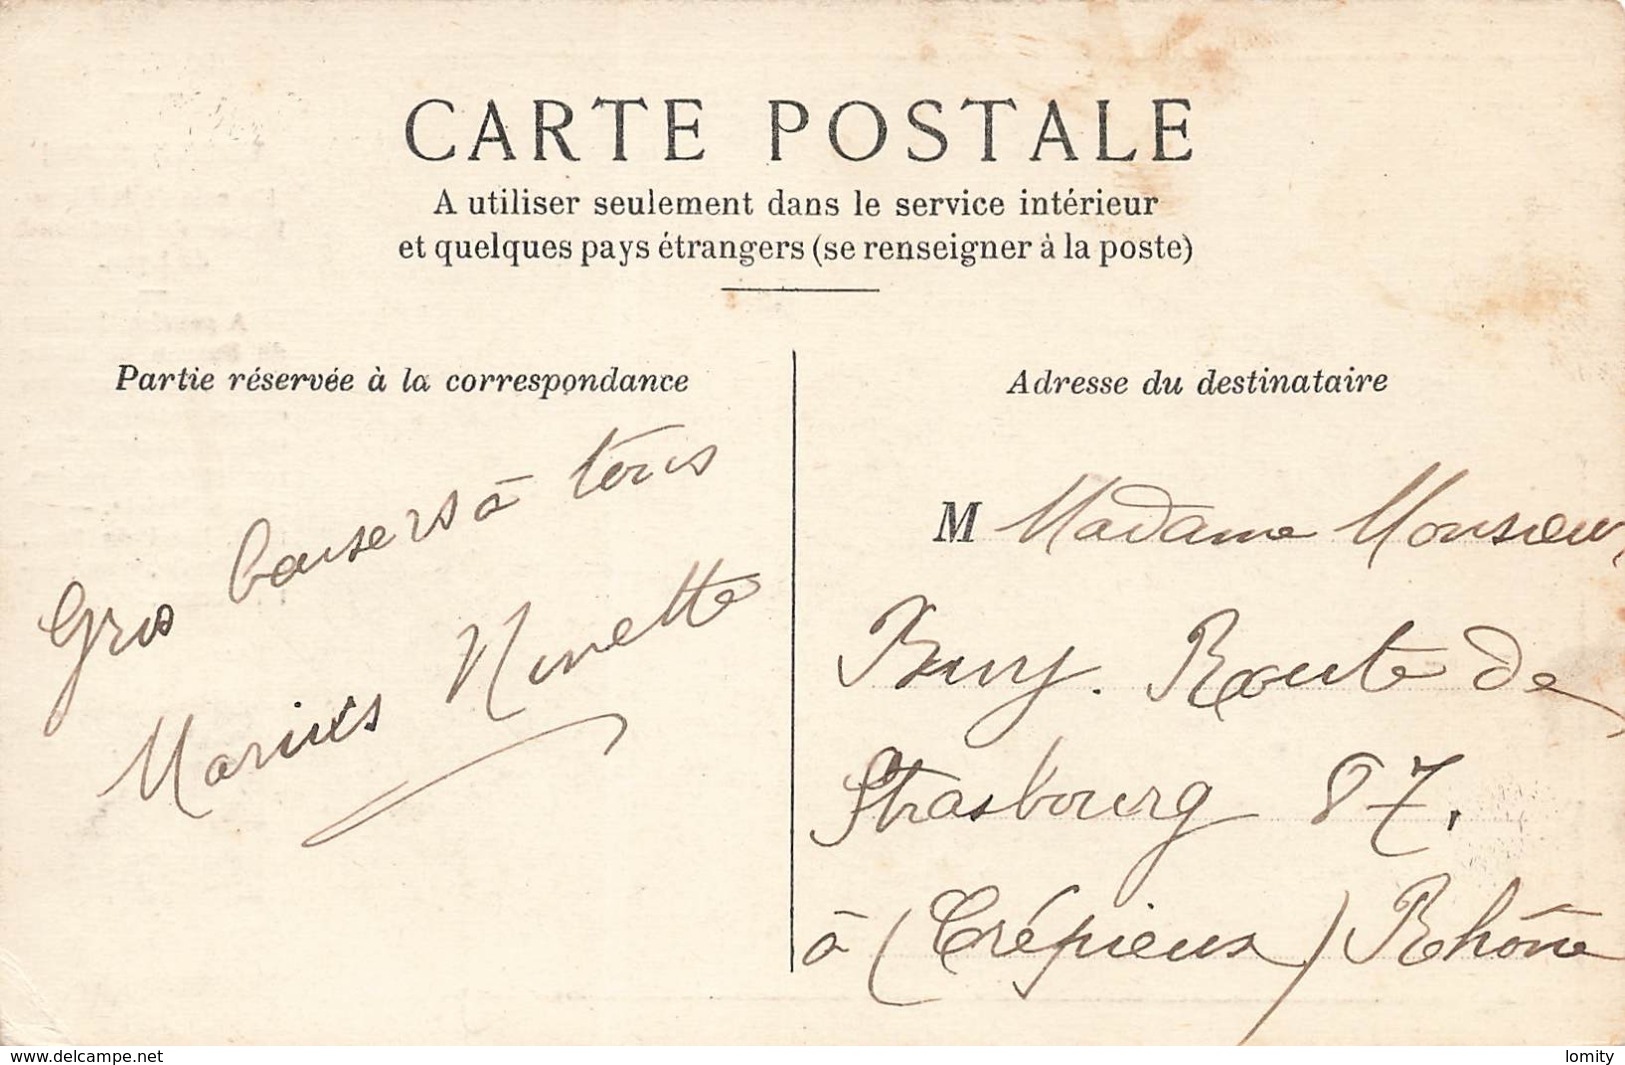 CARTE POSTALE
A utiliser seulement dans le service intérieur
et quelques pays étrangers (se renseigner à la poste)
Partie réservée à la correspondance
Gros baisers à tous
Marius Ninette
Adresse du destinataire
M Madame Monsieur
Buy. Route de
Strasbourg 87.
à (Crépieux) Rhône
www.delcampe.net
lomity